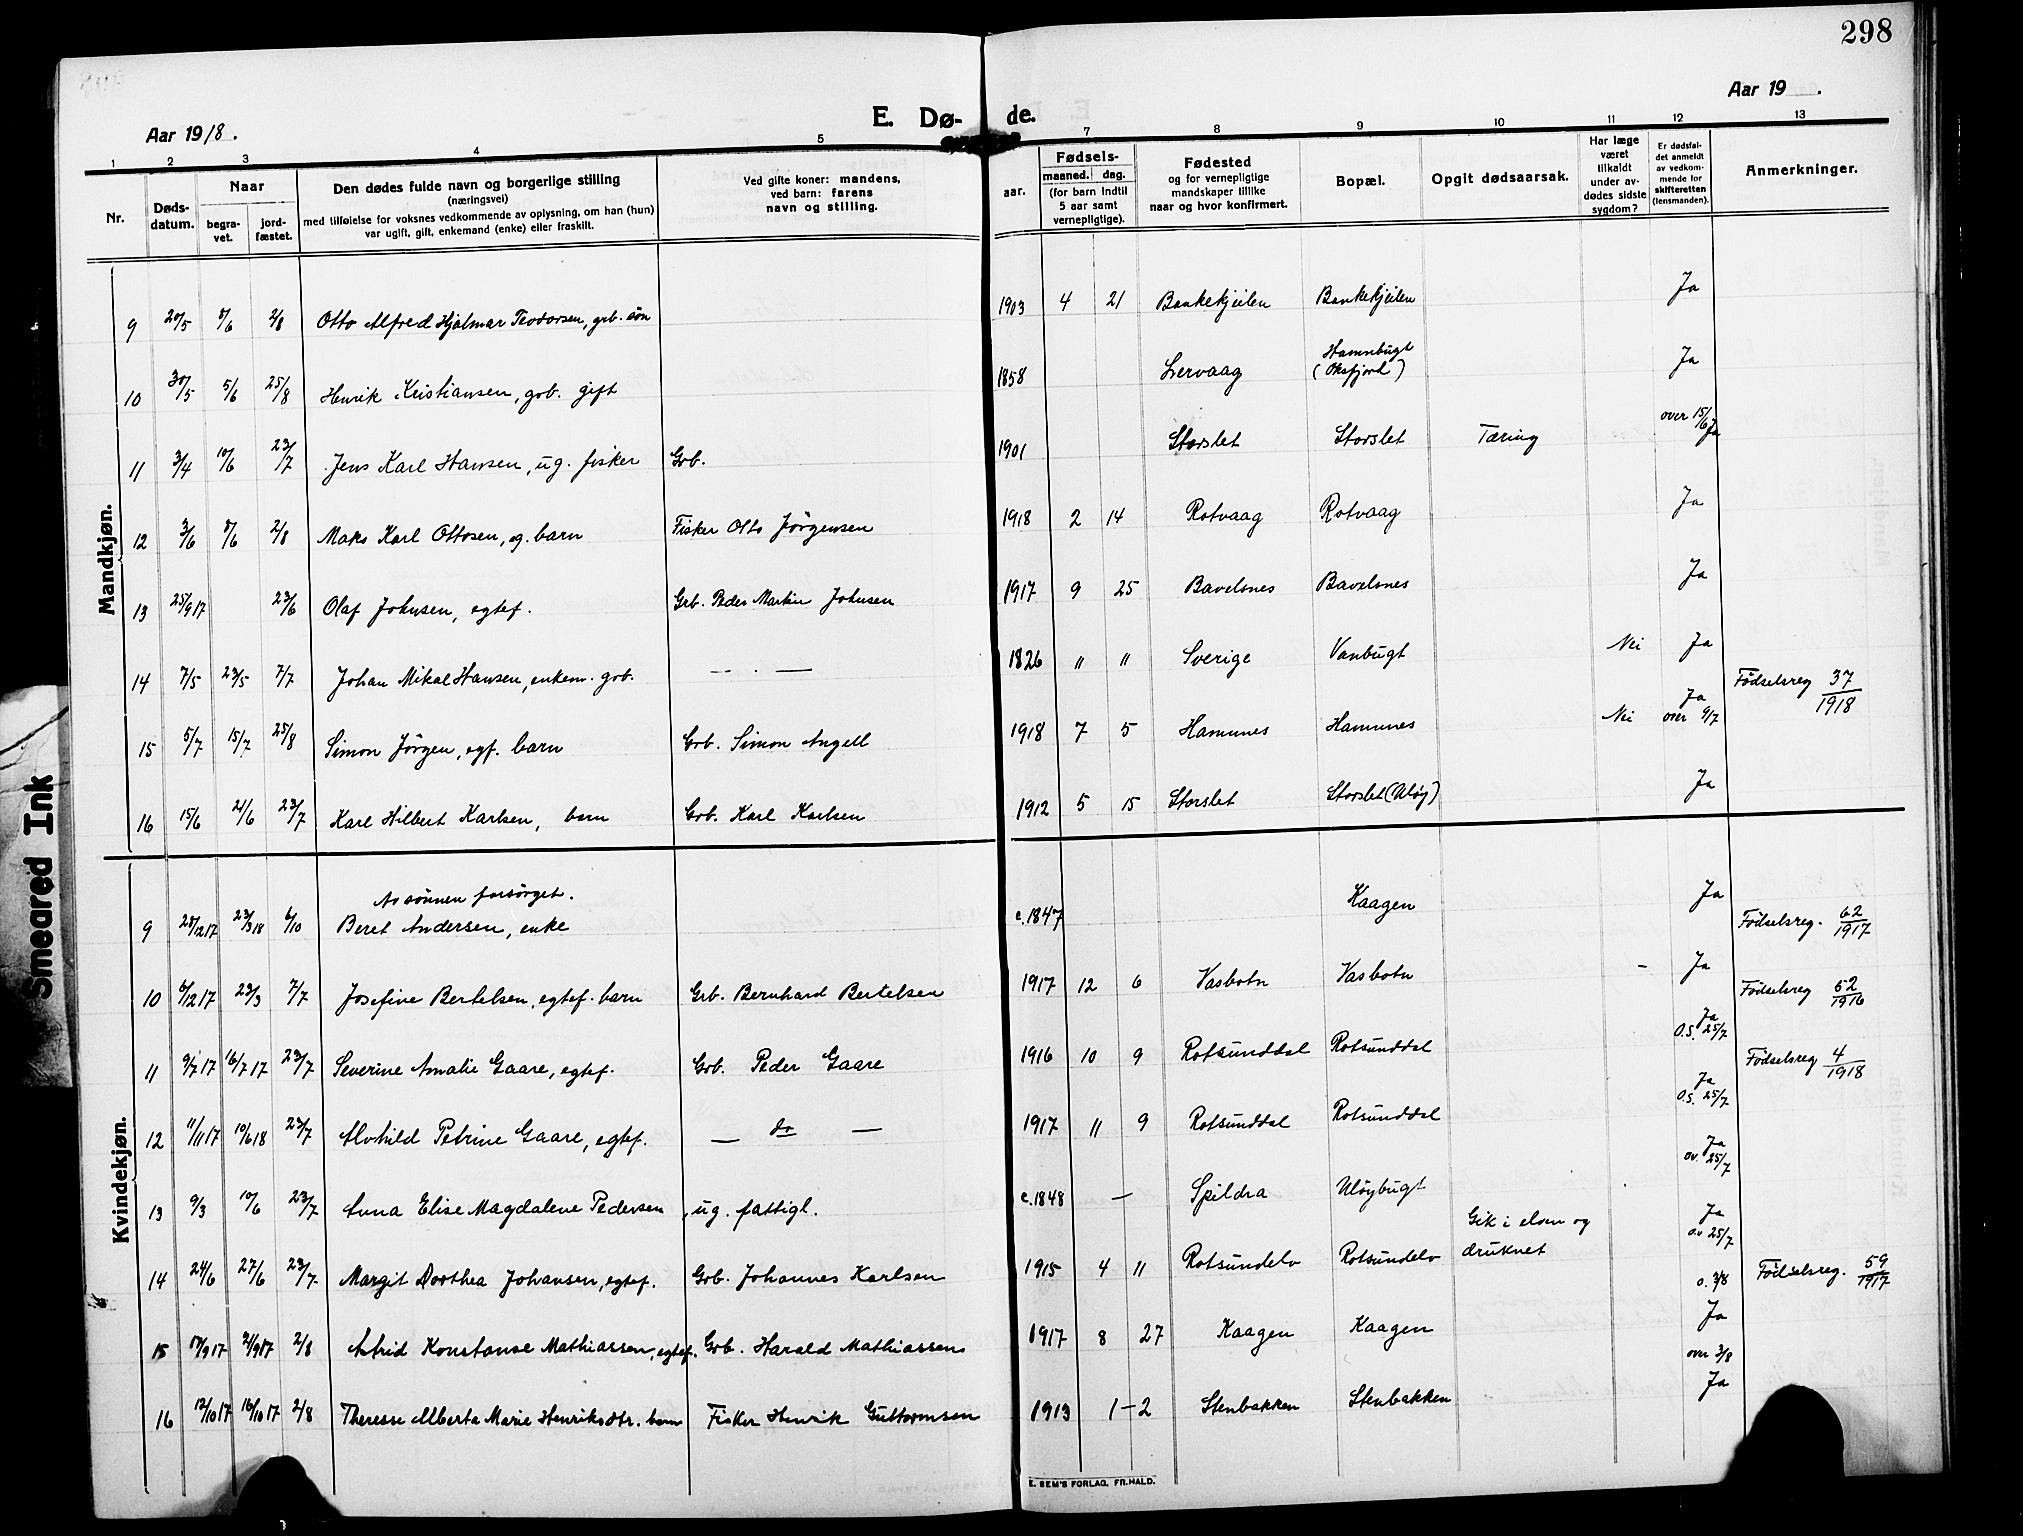 298
Aar 1918.
E. Dø- de.
Aar 19 .
1 2 3 4 5 7 8 9 10 11 12 13
Nr.
Døds-
datum.
Naar
begra-
vet.
jord-
fæstet.
Den dødes fulde navn og borgerlige stilling
(næringsvei)
med tilføielse for voksnes vedkommende av oplysning, om han (hun)
var ugift, gift, enkemand (enke) eller fraskilt.
Ved gifte koner: mandens,
ved barn: farens
navn og stilling.
aar.
Fødsels-
maaned. dag.
(for barn indtil
5 aar samt
vernepligtige).
Fødested
og for vernepligtige
mandskaper tillike
naar og hvor konfirmert.
Bopæl.
Opgit dødsaarsak.
Har læge
været
tilkaldt
under av-
dødes sidste
sygdom?
Er dødsfal-
det anmeldt
av vedkom-
mende for
skifteretten
(lensmanden).
Anmerkninger.
Mandkjøn.
9 20/5 8/6 2/8 Otto Alfred Hjalmar Teodorsen, grb. søn 1903 4 21 Bankekjeilen Bankekjeilen Ja
10 30/5 5/6 25/8 Henrik Kristiansen, gob. gift 1858 Lervaag Hamnbugt (Oksfjord) Ja
11 3/4 10/6 23/7 Jens Karl Hansen, ug. fisker Gob. 1901 Storslet Storslet Tæring over 15/6 Ja
12 3/6 8/6 2/8 Maks Karl Ottosen, eg. barn Fisker Otto Jørgensen 1918 2 14 Rotvaag Rotvaag Ja
13 25/9 17 23/6 Olaf Johnsen, egtef. Grb. Peder Martin Johnsen 1917 9 25 Bavelsnes Bavelsnes Ja
14 7/5 23/5 7/7 Johan Mikal Hansen, enkem. gob. — . — 1826 " " Sverige Vanbugt Nei Ja
15 5/7 15/7 25/8 Simon Jørgen, egf. barn Gob. Simon Angell 1918 7 5 Hamnnes Hamnnes Nei Ja over 9/7 Fødselsreg 37/1918
16 15/6 21/6 23/7 Karl Hilbert Karlsen, barn Gob. Karl Karlsen 1912 5 15 Storslet Storslet (Uløy) Ja
Kvindekjøn.
Av sønnen forsørget.
9 28/12 17 23/3 18 6/10 Beret Andersen, enke c. 1847 Kaagen Ja
10 6/12 17 23/3 7/7 Josefine Bertelsen, egtef. barn Grb. Bernhard Bertelsen 1917 12 6 Vasbotn Vasbotn - Ja Fødselsreg. 62/1917
11 9/7 17 16/7 17 23/7 Severine Amalie Gaare, egtef. Gob. Peder Gaare 1916 10 9 Rotsunddal Rotsunddal Ja O.S. 25/7 Fødselsreg 52/1916
12 11/11 17 10/6 18 23/7 Alvhild Petrine Gaare, egtef. — do — 1917 11 9 Rotsunddal Rotsunddal Ja O.S. 25/7 Fødselsreg 4/1918
13 9/3 10/6 23/7 Anna Elise Magdalene Pedersen, ug. fattigl. c. 1848 — Spildra Uløybugt Ja ov. 25/7
14 24/6 27/6 23/7 Margit Dorthea Johansen, egtef. Gob. Johannes Karlsen 1915 4 11 Rotsundelv Rotsundelv Gik i elven og druknet Ja o.v 25/7
15 17/9 17 21/9 17 2/8 Astrid Konstanse Mathiassen, egtef. Gob. Harald Mathiassen 1917 8 27 Kaagen Kaagen o. 3/8 Ja Fødselsreg. 59/1917
16 12/10 17 16/10 17 2/8 Theresse Alberta Marie Henriksdtr. barn Fisker Henrik Guttormsen 1913 1 - 2 Stenbakken Stenbakken over 3/8 Ja
E. SEM'S FORLAG, FR.HALD.
Smeared Ink